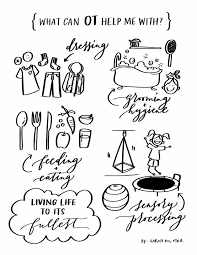 { WHAT CAN OT HELP ME WITH? }
dressing
grooming
hygiene
feeding
eating
sensory
processing
LIVING LIFE
TO ITS
fullest
BY: